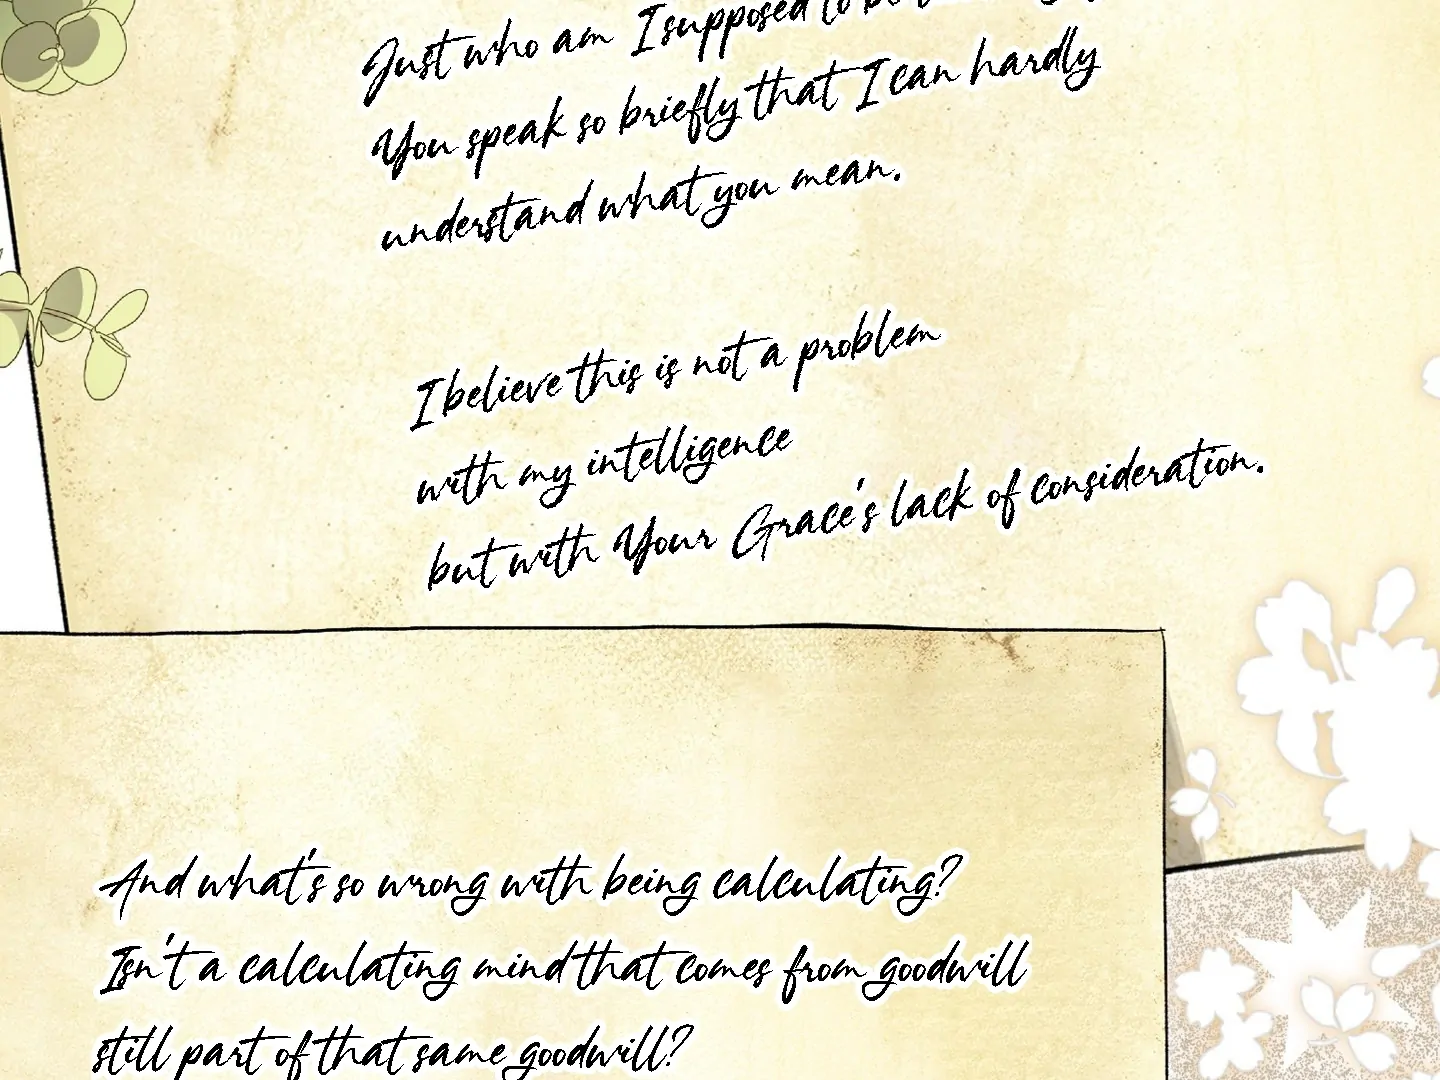 Just who am I supposed to be
You speak so briefly that I can hardly
understand what you mean.
I believe this is not a problem
with my intelligence
but with Your Grace's lack of consideration.
And what's so wrong with being calculating?
Isn't a calculating mind that comes from goodwill
still part of that same goodwill?